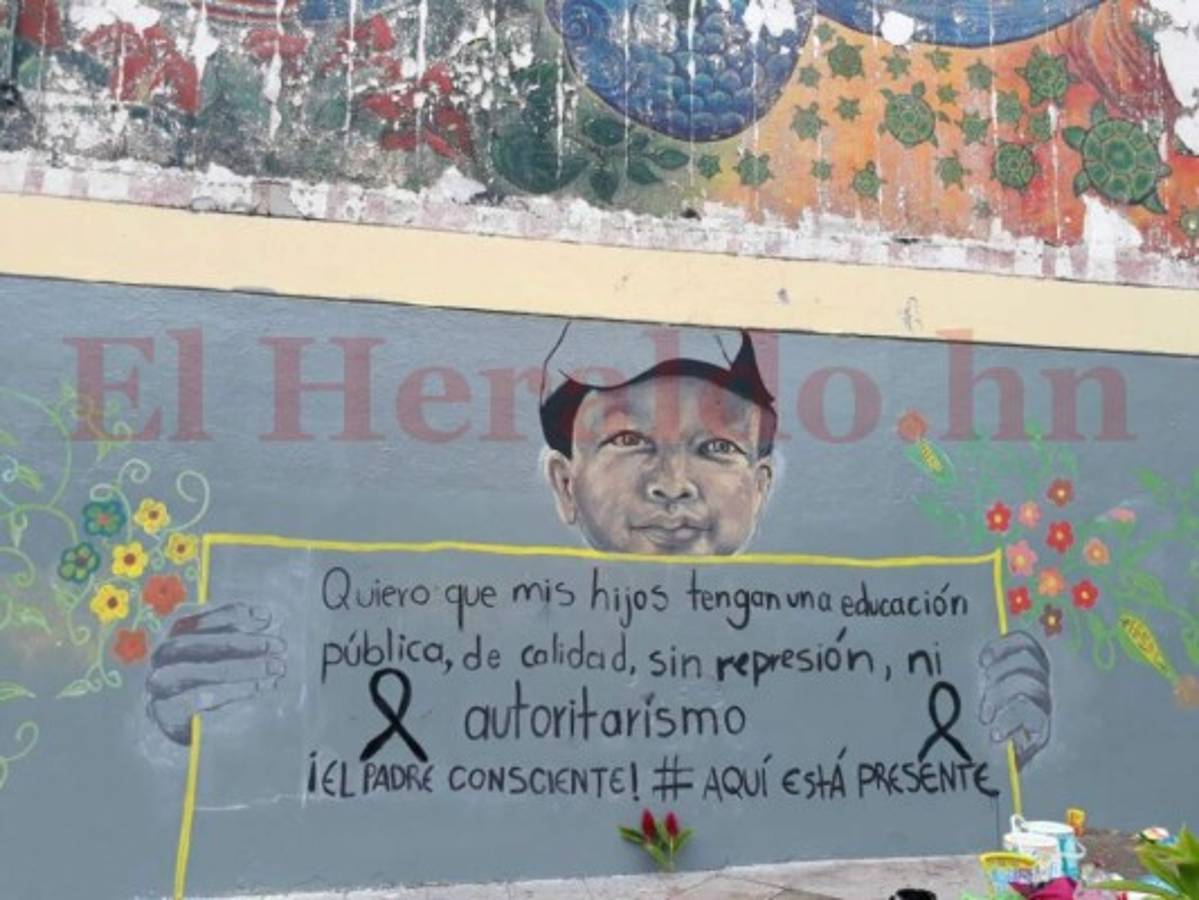 El Heraldo.hn
Quiero que mis hijos tengan una educación
pública, de calidad, sin represión, ni
autoritarísmo
¡EL PADRE CONSCIENTE! # AQUÍ ESTÁ PRESENTE